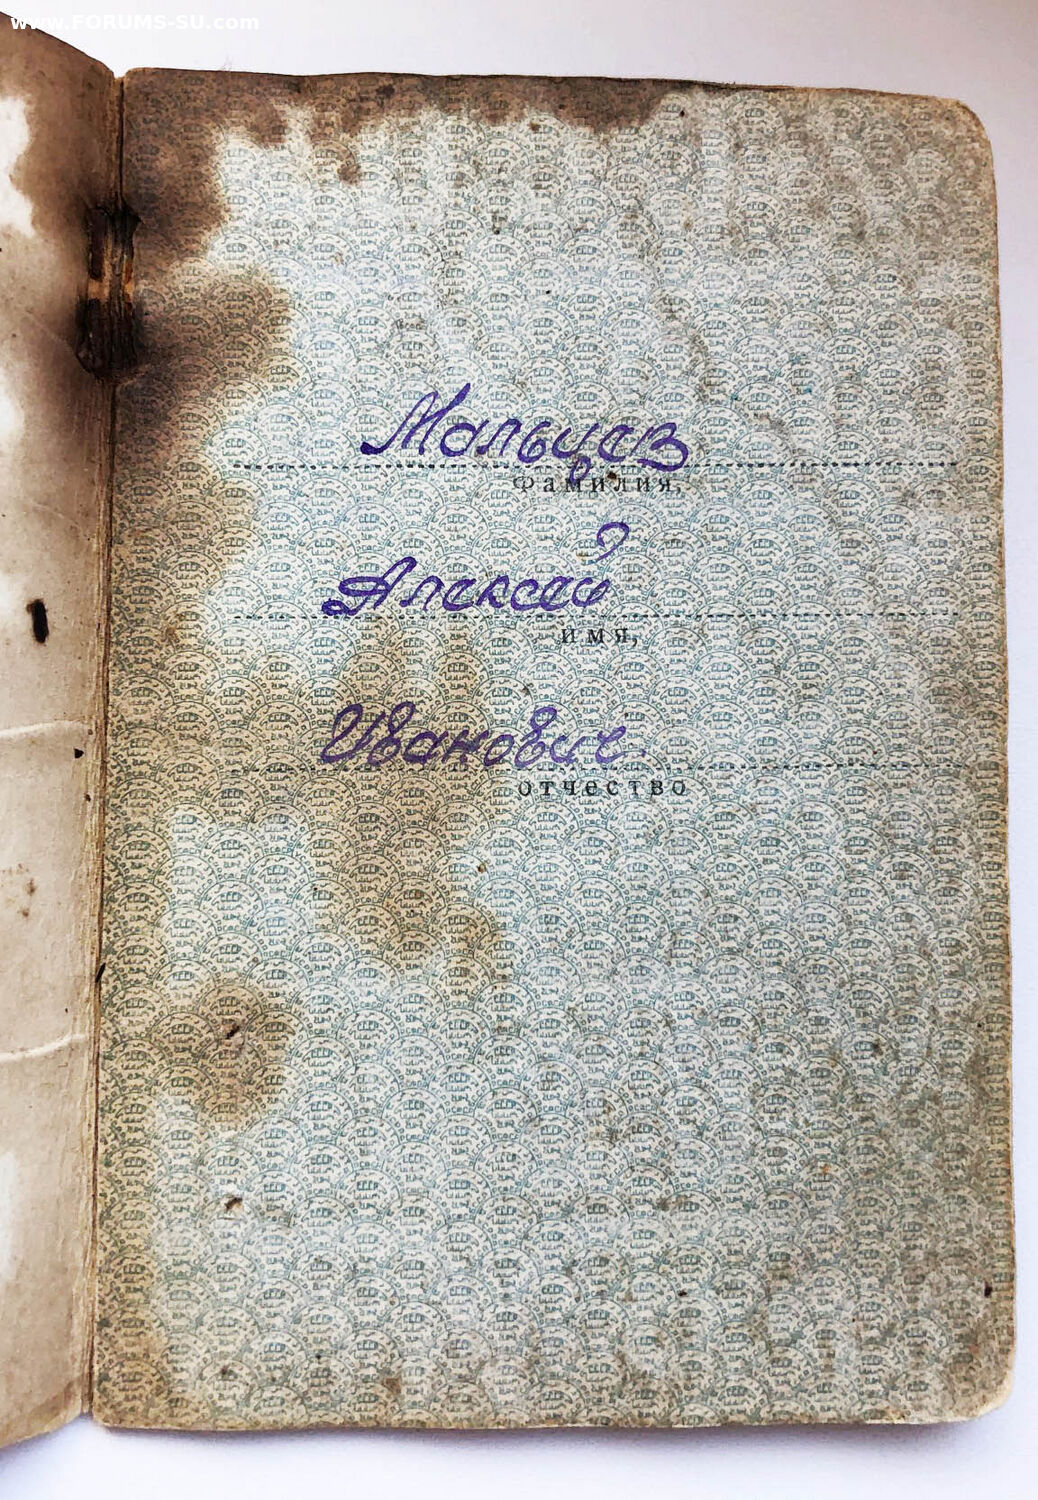 www.FORUMS-SU.com
Мальцев
фамилия,
Алексей
имя,
Иванович
отчество